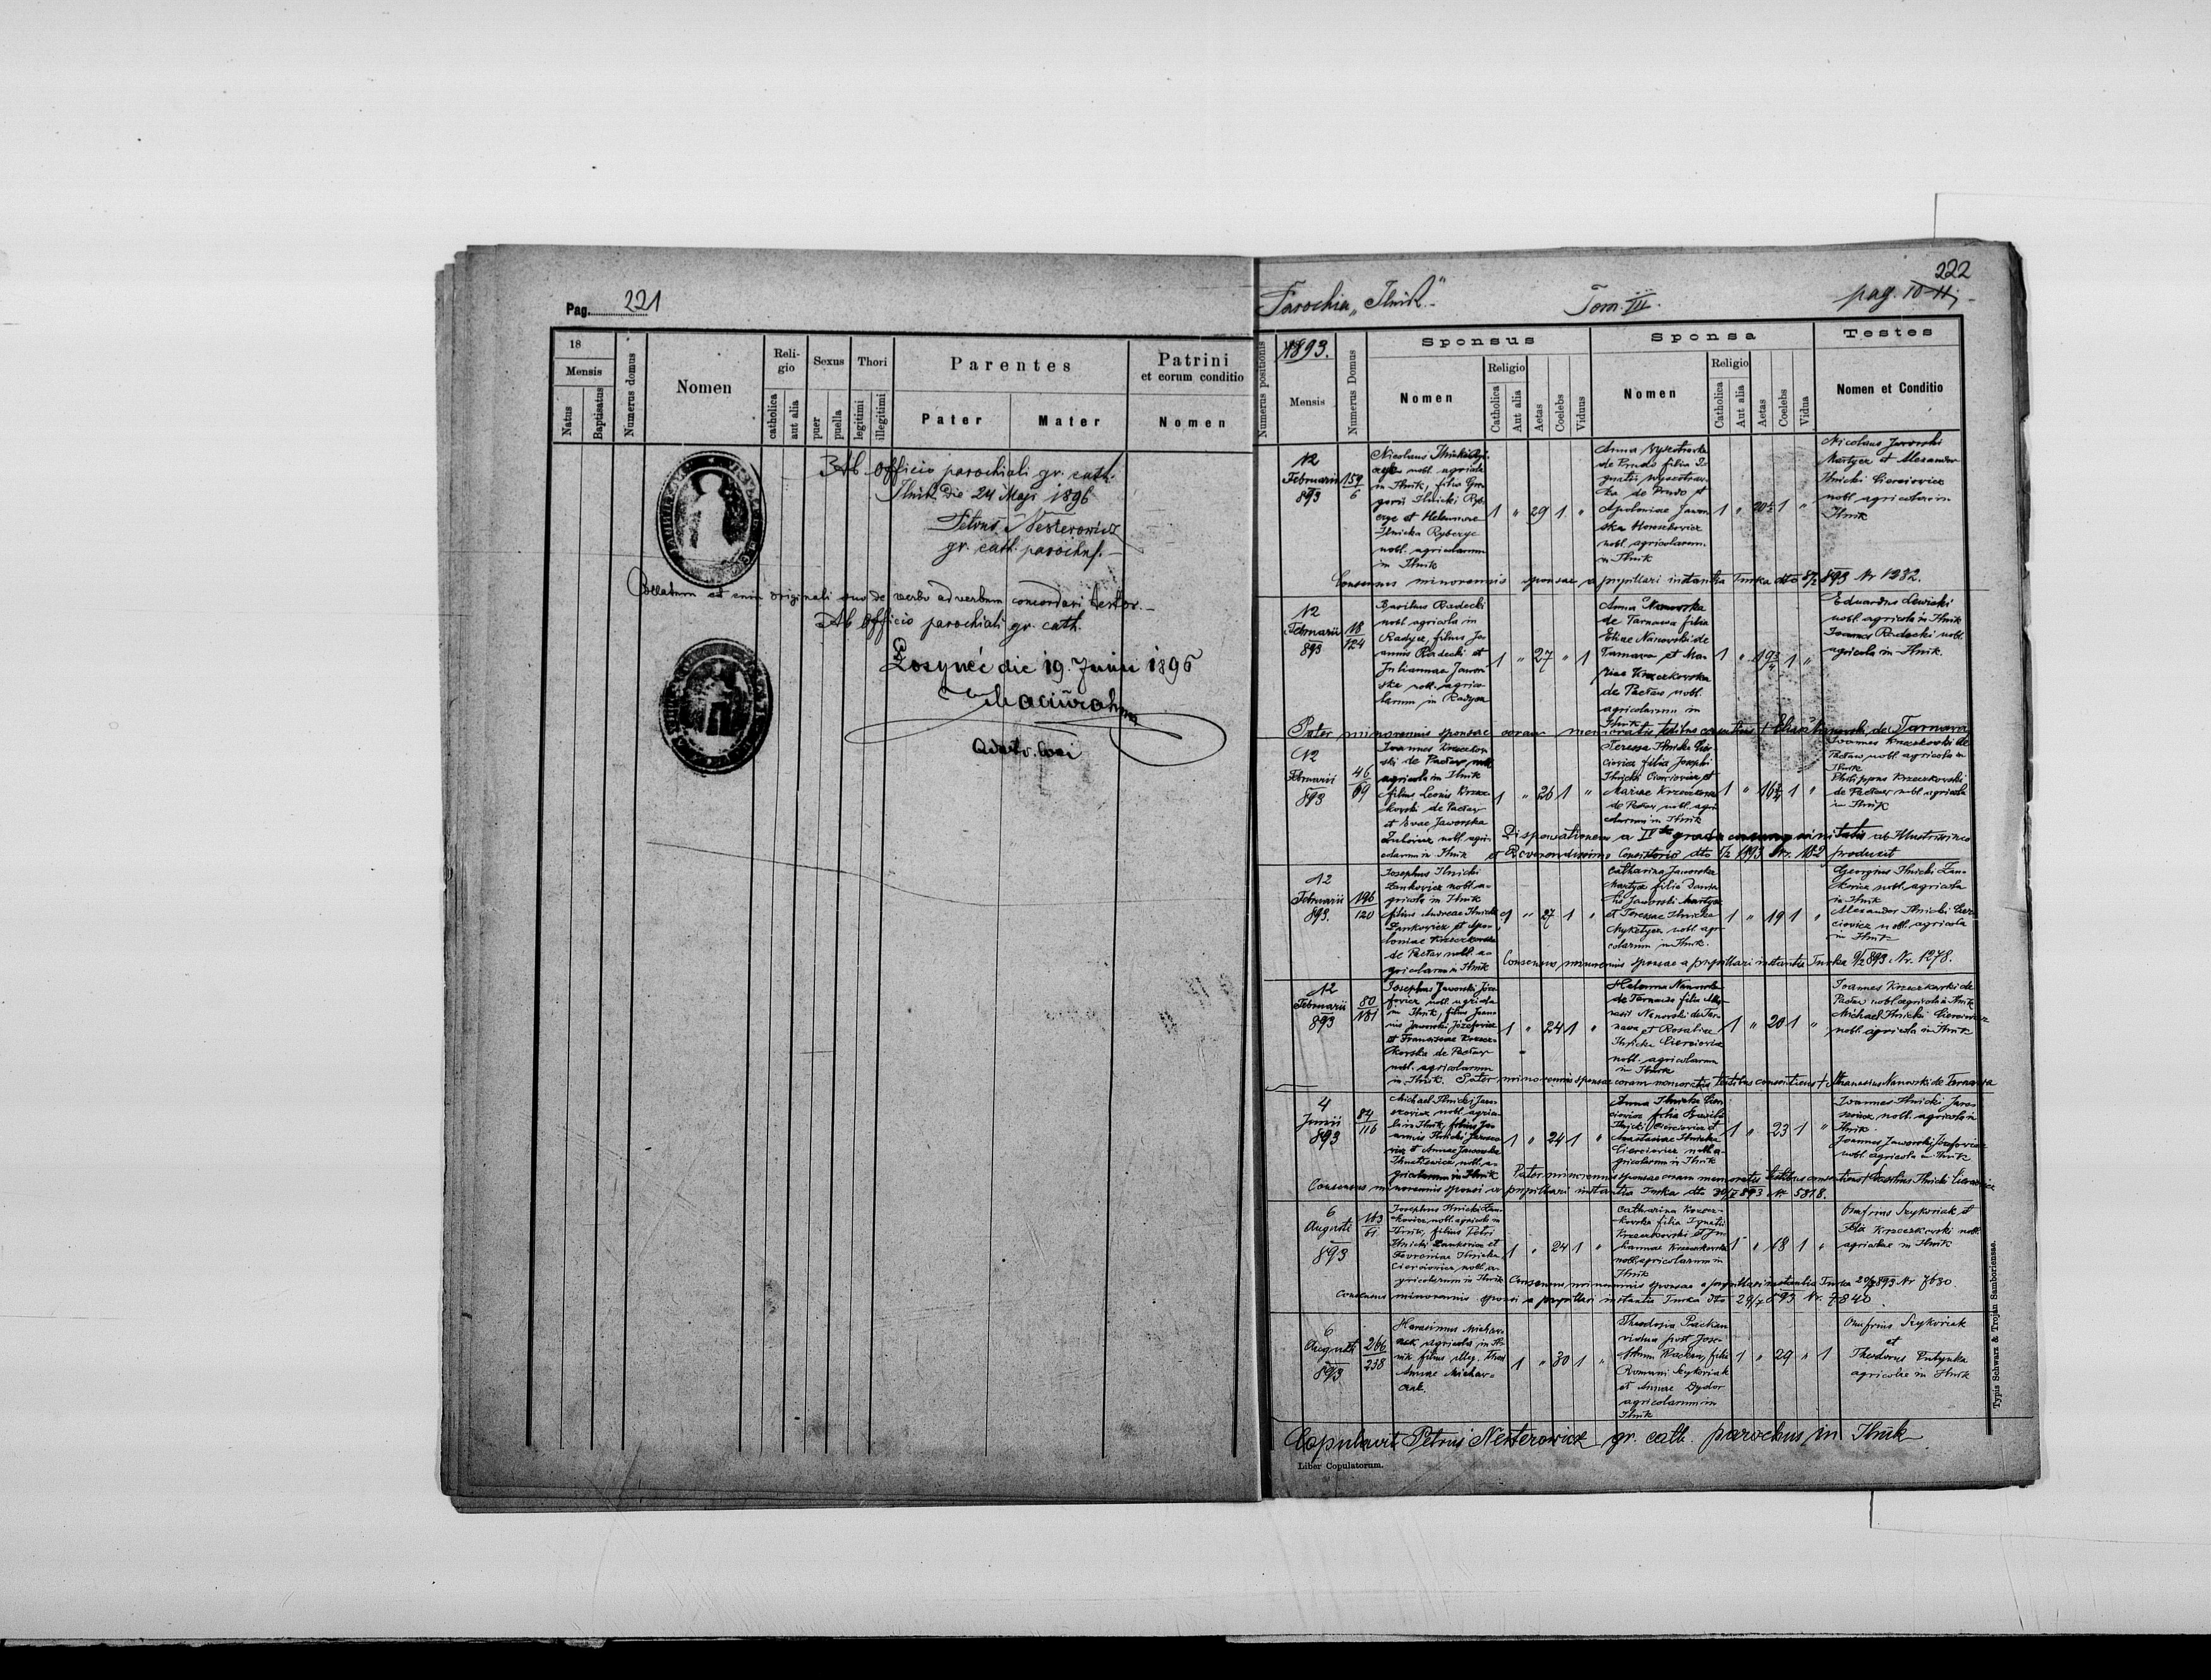 Pag. 221
18
Mensis
Natus
Baptisatus
Numerus domus
Nomen
Reli-
gio
catholica
aut alia
Sexus
puer
puella
Thori
legitimi
illegitimi
Parentes
Pater
Mater
Patrini
et eorum conditio
Nomen
Ab officio parochiali gr. cath.
Ilnik die 24 Maji 1896
Petrus Nesterowicz
gr. cath. parochus.
originali suo de verbo ad verbum concordari testor.
Ab officio parochiali gr. cath.
Łosyneć die 19. Junii 1896
222
Parochia "Ilnik"
Tom. III.
pag. 10-11
Numerus positionis
1893.
Mensis
Numerus Domus
Sponsus
Nomen
Religio
Catholica
Aut alia
Aetas
Coelebs
Viduus
Sponsa
Nomen
Religio
Catholica
Aut alia
Aetas
Coelebs
Vidua
Testes
Nomen et Conditio
12
Februarii
893
159
6
Nicolaus Ilnicki Ryb-
nobl. agricola
in Ilnik, filius Gre-
gorii Ilnicki Ryb-
et Helennae
Ilnicka Rybczyc
nobl. agricolarum
in Ilnik
1 " 29 1 "
Anna
filia Ig-
natii
Apoloniae Jawor-
ska
nobl. agricolarum
in Ilnik
1 " 1 "
Nicolaus Jaworski
Martycz et Alexander
Ilnicki Cierciowicz
nobl. agricolae in
Ilnik
Consensus minorennis sponsae a pupillari instantia Turka dto 8/2 893 Nr 1282.
12
Februarii
893
18
124
Basilius Radecki
nobl. agricola in
Radycz, filius Jo-
annis Radecki et
Juliannae Jawor-
ska nobl. agrico-
larum in Radycz
1 " 27 " 1
Anna Nanowska
de Tarnawa filia
Eliae Nanowski de
Tarnawa et Ma-
riae Krzeczkowska
de Pacław nobl.
agricolarum in
Ilnik
1 " 19 3/4 1 "
Eduardus Lewicki
nobl. agricola in Ilnik
Joannes Radecki nobl.
agricola in Ilnik.
Pater minorennis sponsae coram memoratis testibus consentiens + Elias Nanowski de Tarnawa
12
Februarii
893
46
69
Joannes Krzeczkow-
ski de Pacław nobl.
agricola in Ilnik
filius Leonis Krzecz-
kowski de Pacław
et Evae Jaworska
nobl. agri-
colarum in Ilnik
1 " 26 1 "
Teressa Ilnicka Cier-
ciowicz filia Josephi
Ilnicki Cierciowicz et
Mariae Krzeczkowska
de Pacław nobl. agri-
colarum in Ilnik
1 " 1 "
Joannes Krzeczkowski de
Pacław nobl. agricola in
Ilnik
Philippus Krzeczkowski
de Pacław nobl. agricola
in Ilnik
Dispensationem a IV gradu consanguinitatis ab Illustrissimo
et Reverendissimo Consistorio dto 1893 Nr. 182 produxit
12
Februarii
893.
196
120
Josephus Ilnicki
Zankowicz nobl. a-
gricola in Ilnik
filius Andreae Ilnicki
Zankowicz et Apo-
loniae Krzeczkowska
de Pacław nobl. a-
gricolarum in Ilnik
1 " 27 1 "
Catharina Jaworska
Martycz filia Danie-
lis Jaworski Martycz
et Teressae Ilnicka
Mykietycz nobl. agri-
colarum in Ilnik.
1 " 19 1 "
Georgius Ilnicki Zan-
kowicz nobl. agricola
in Ilnik
Alexander Ilnicki Cier-
ciowicz nobl. agricola
in Ilnik
Consensus minorennis sponsae a pupillari instantia Turka 9/2 893. Nr. 1278.
12
Februarii
893
80
181
Josephus Jaworski Józe-
fowicz nobl. agricola
in Ilnik, filius Joan-
nis Jaworski Józefowicz
et Franciscae Krzecz-
kowska de Pacław
nobl. agricolarum
in Ilnik.
1 " 24 1 "
Helenna Nanowska
de Tarnawa filia Atha-
nasii Nanowski de Tar-
nawa et Rosaliae
Ilnicka Cierciowicz
nobl. agricolarum
in Ilnik
1 " 20 1 "
Joannes Krzeczkowski de
Pacław nobl. agricola in Ilnik
Michael Ilnicki Cierciowicz
nobl. agricola in Ilnik
Pater minorennis sponsae coram memoratis testibus consentiens + Athanasius Nanowski de Tarnawa
4
Junii
893
84
116
Michael Ilnicki Jaro-
szewicz nobl. agrico-
la in Ilnik, filius Jo-
annis Ilnicki Jarosze-
wicz et Annae Jaworska
Ihnatkewicz nobl. a-
gricolarum in Ilnik
1 " 24 1 "
Anna Ilnicka Cier-
ciowicz filia Basilii
Ilnicki Cierciowicz et
Anastasiae Ilnicka
Cierciowicz nobl. a-
gricolarum in Ilnik
1 " 23 1 "
Joannes Ilnicki Jaro-
szewicz nobl. agricola in
Ilnik.
Joannes Jaworski Józefowicz
nobl. agricola in Ilnik
Pater minorennis sponsae coram memoratis testibus consentiens + Basilius Ilnicki Cierciowicz
Consensus minorennis sponsi a pupillari instantia Turka dto 893 Nr 5818.
6
Augusti
893
163
61
Josephus Ilnicki Zan-
kowicz nobl. agricola in
Ilnik, filius Petri
Ilnicki Zankowicz et
Fevroniae Ilnicka
Cierciowicz nobl. a-
gricolarum in Ilnik
1 " 24 1 "
Catharina Krzecz-
kowska filia Ignatii
Krzeczkowski et Ju-
liannae Krzeczkowska
nobl. agricolarum in
Ilnik
1 " 18 1 "
Onufrius Szykoriak et
Krzeczkowski nobl.
agricolae in Ilnik
Consensus minorennis sponsae a pupillari instantia Turka 20/7 893 Nr 7630
Consensus minorennis sponsi a pupillari instantia Turka dto 29/7 893 Nr. 7840.
6
Augusti
893
266
238
Harasimus Michav-
czak agricola in Il-
nik filius illeg. thori
Annae Michav-
czak.
1 " 30 1 "
Theodozia Packan
vidua post Jose-
phum Packan, filia
Romani Szykoriak
et Annae Dydor
agricolarum in
Ilnik
1 " 29 " 1
Onufrius Szykoriak
et
Theodorus Putynka
agricolae in Ilnik
Copulavit Petrus Nesterowicz gr. cath. parochus in Ilnik
Liber Copulatorum.
Typis Schwarz & Trojan Samboriensae.